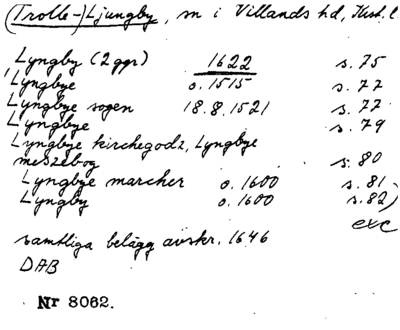 (Trolle-)Ljungby, sn i Villands hd, Krist. l.
Lyngby (2 ggr) 1622 s. 75
Lyngbye o. 1515 s. 77
Lyngbye sogen 18.8.1521 s. 77
Lyngbye s. 79
Lyngbye kirchegodz, Lyngbye
meszebog s. 80
Lyngbye marcher o. 1600 s. 81
Lyngby o. 1600 s. 82)
exc
samtliga belägg avskr. 1646
DAB
Nr 8062.